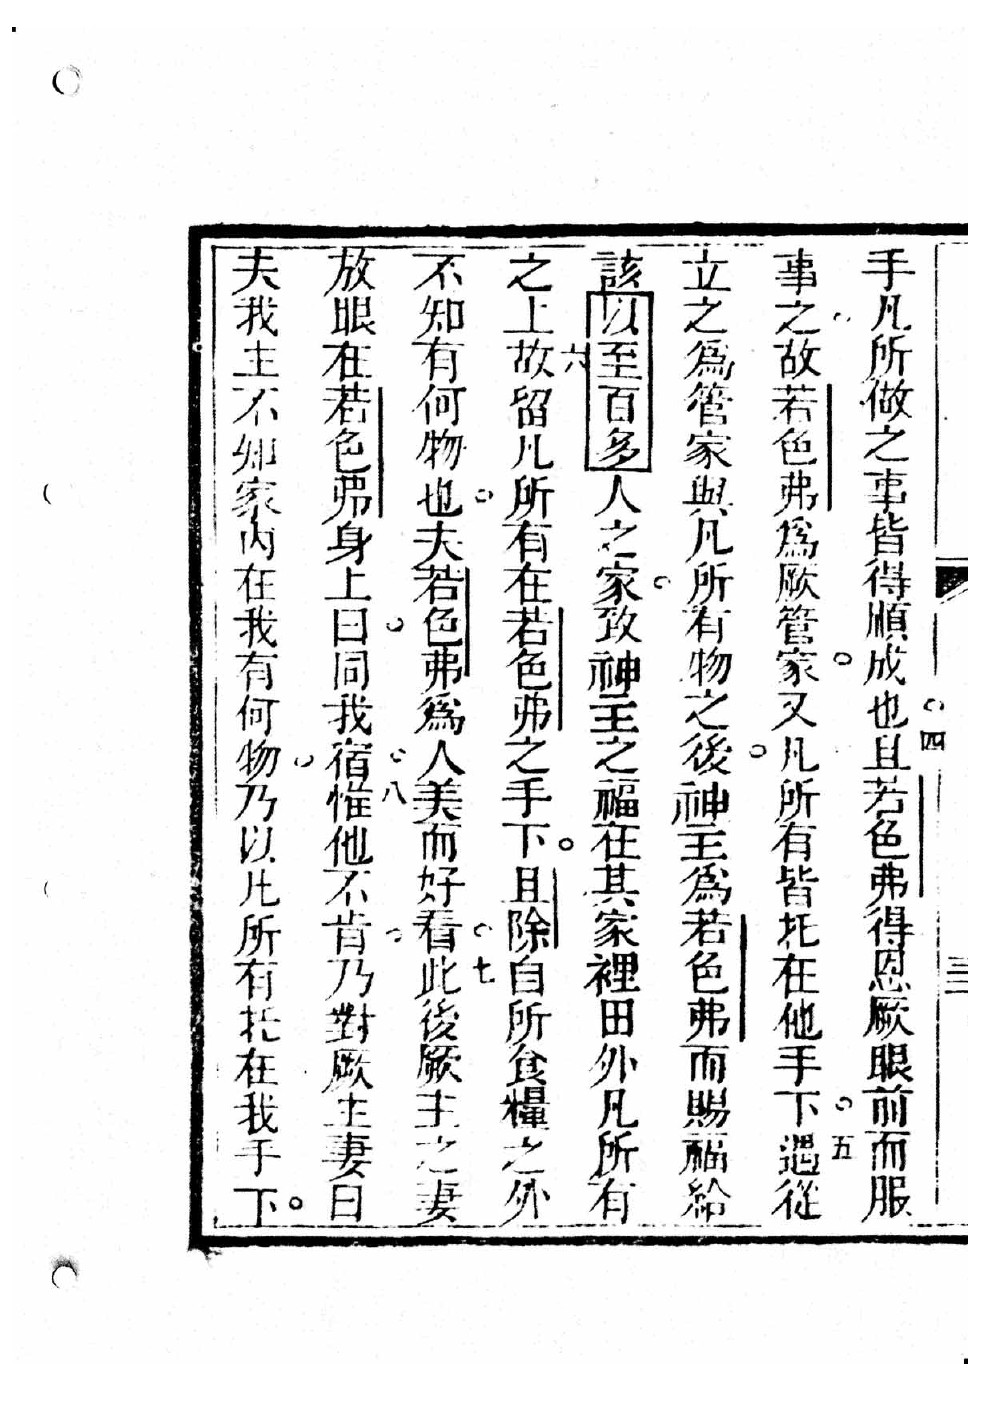 手凡所做之事皆得順成也。四且若色弗得恩厥眼前而服
事之。故若色弗爲厥管家。又凡所有皆托在他手下。五遇從
立之爲管家與凡所有物之後。神主爲若色弗而賜福給
該以至百多人之家。致神主之福在其家裡田外凡所有
之上。六故留凡所有在若色弗之手下。且除自所食糧之外
不知有何物也。夫若色弗爲人美而好看。七此後厥主之妻
放眼在若色弗身上。曰同我宿。八惟他不肯。乃對厥主妻曰
夫我主不知家內在我有何物。乃以凡所有托在我手下。
三